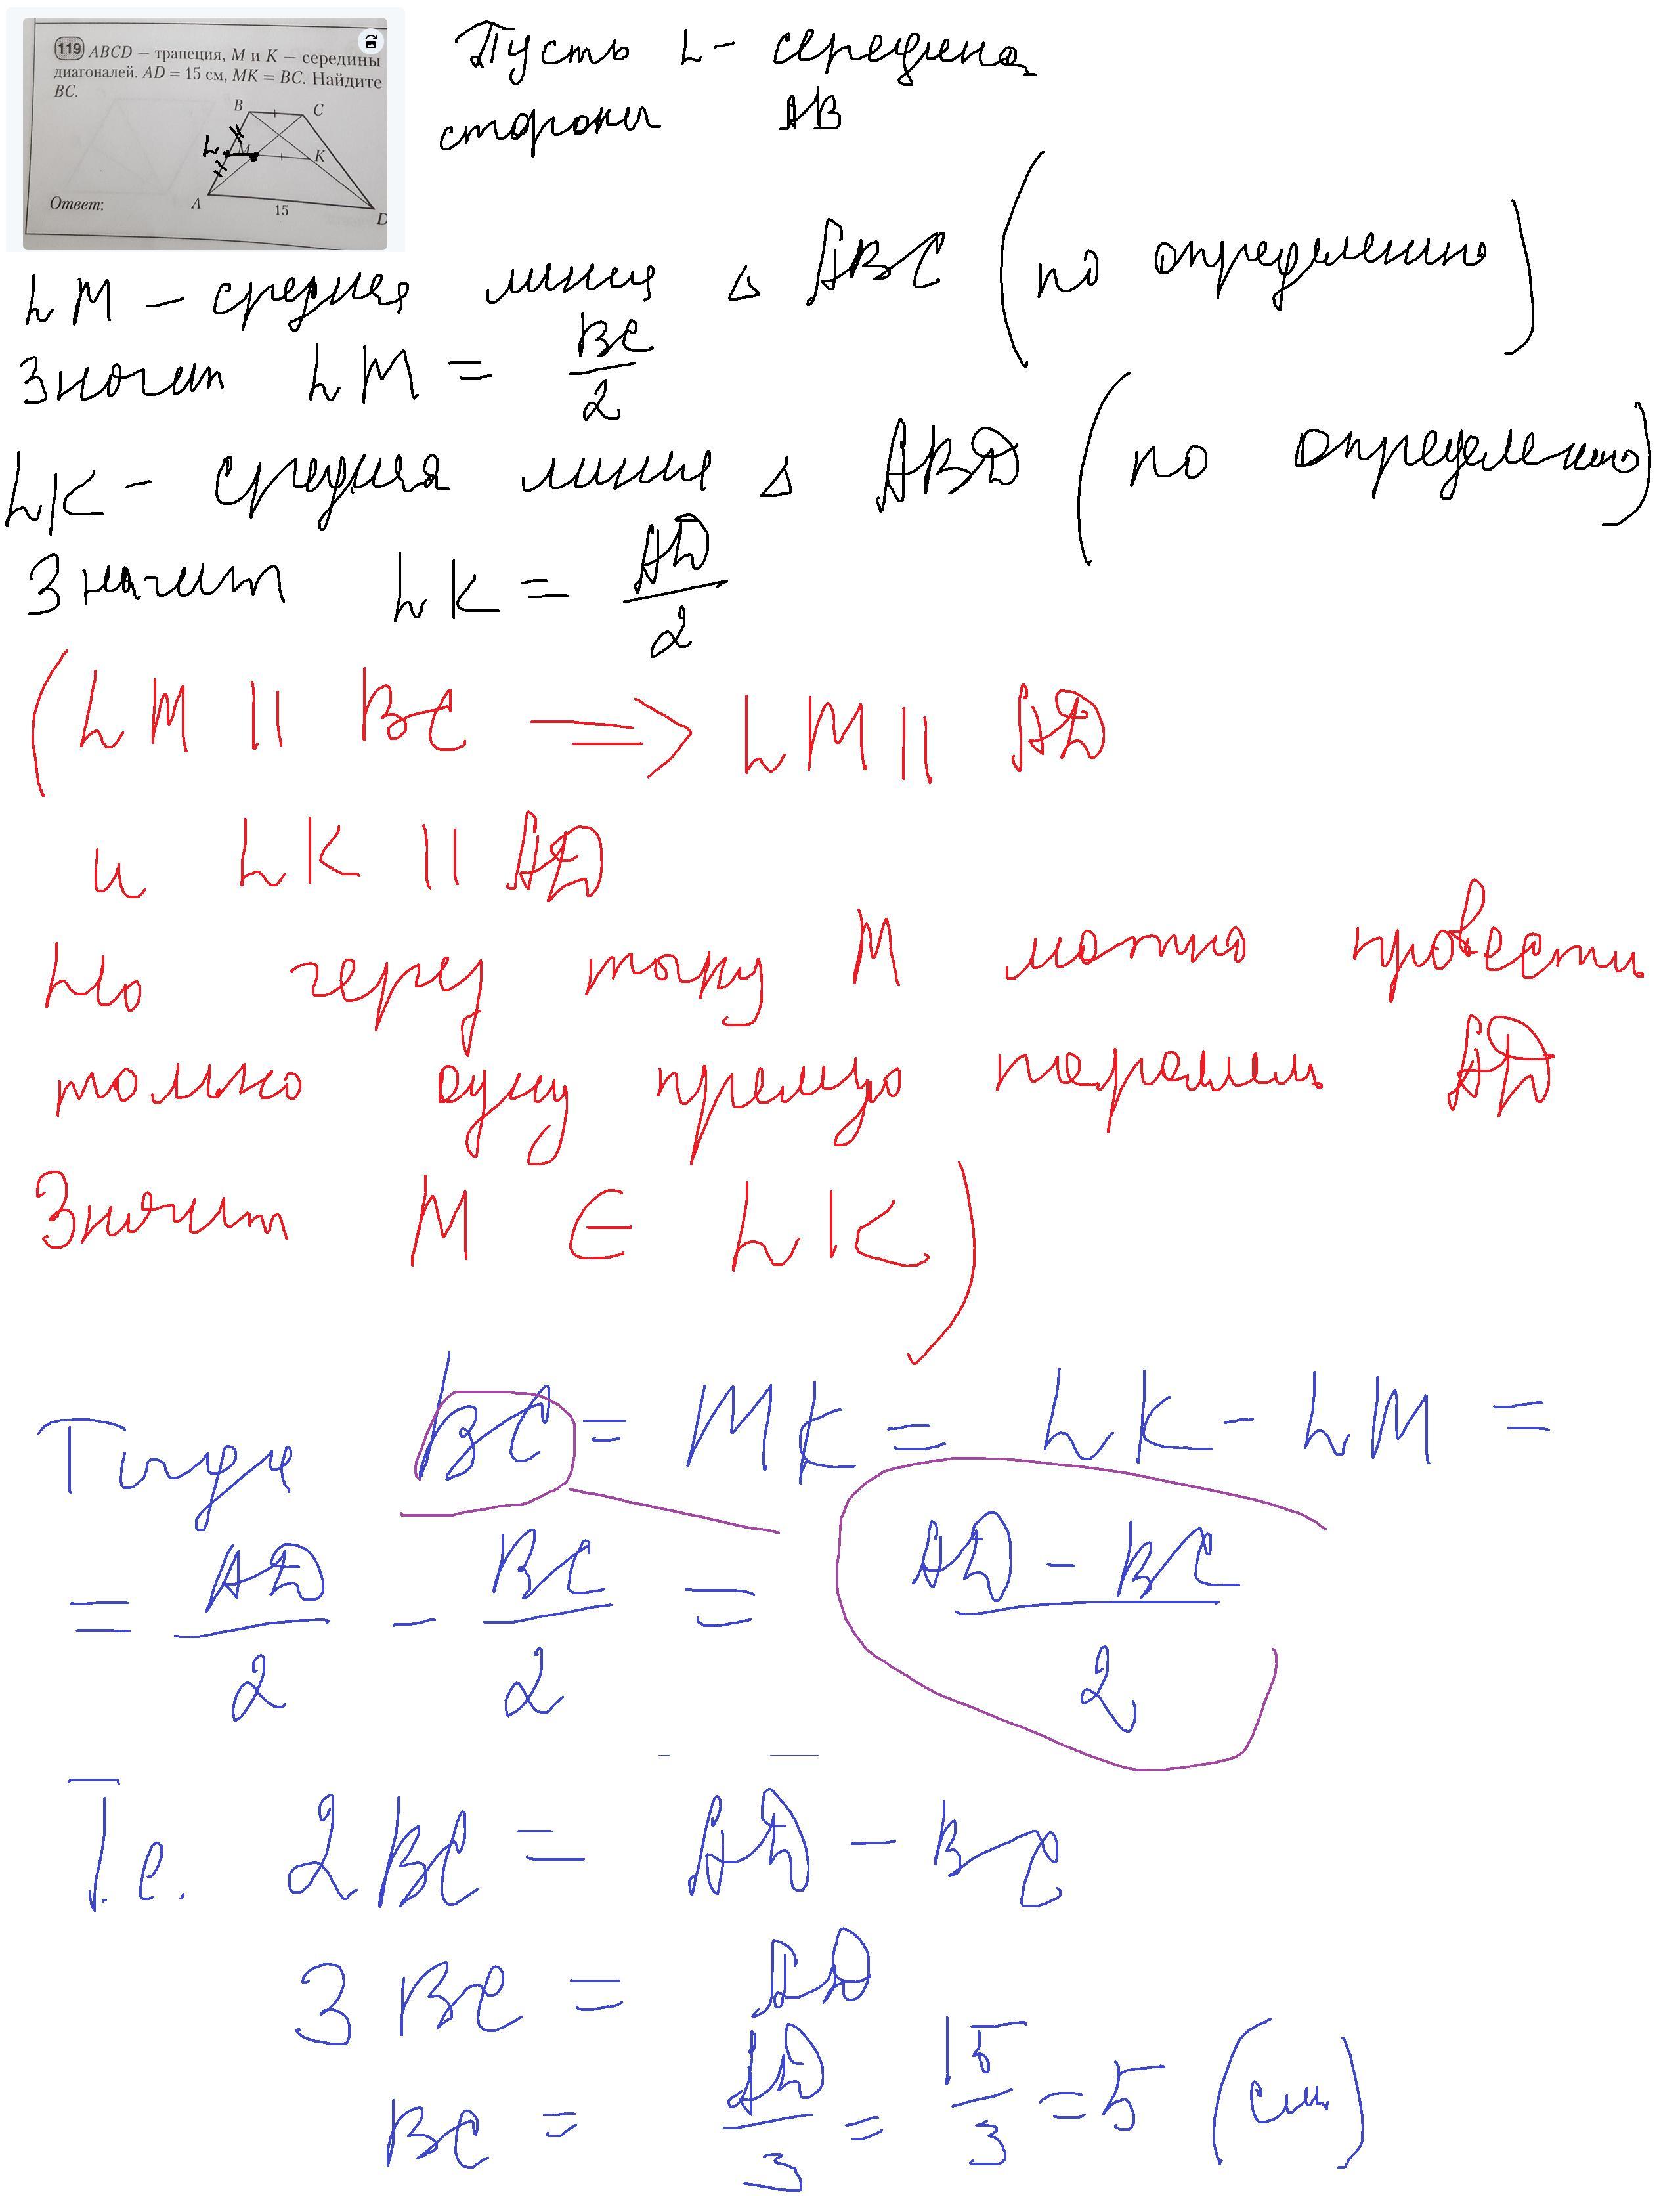 119 ABCD — трапеция, M и K — середины
диагоналей. AD = 15 см, MK = BC. Найдите
BC.
B
C
L
M
K
A
15
D
Ответ:
Пусть L - середина
стороны AB
LM - средняя линия △ ABC (по определению)
Значит LM = BC/2
LK - средняя линия △ ABD (по определению)
Значит LK = AD/2
(LM || BC => LM || AD
и LK || AD
Но через точку M можно провести
только одну прямую параллель AD
Значит M ∈ LK)
Тогда BC = MK = LK - LM =
= AD/2 - BC/2 = (AD - BC)/2
Т.е. 2BC = AD - BC
3BC = AD
BC = AD/3 = 15/3 = 5 (см)